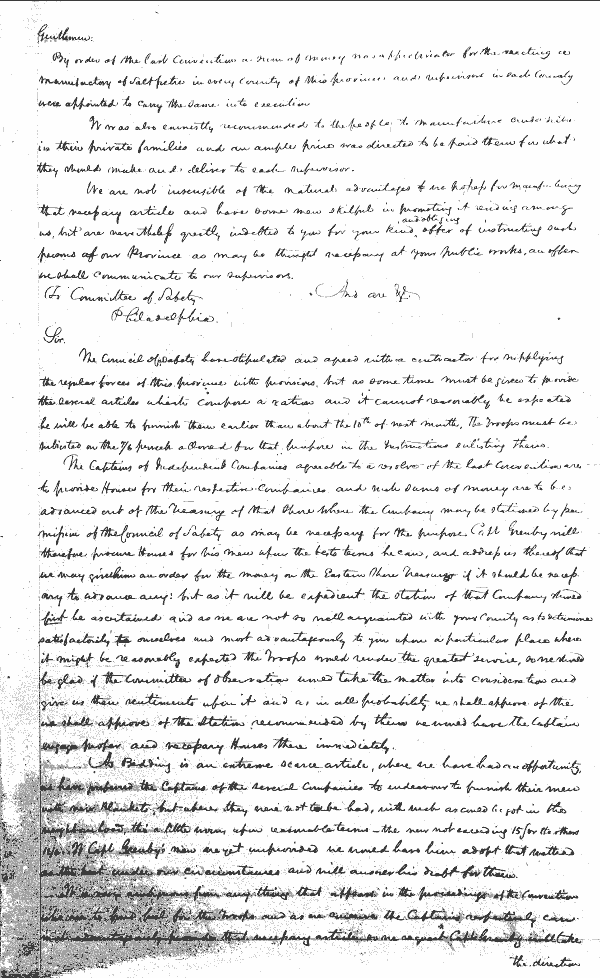 Gentlemen.
By order of the last Convention a sum of money was appropriated for the erecting a
manufactory of Salt petre in every County of this province and supervisors in each County
were appointed to carry the same into execution
It was also earnestly recommended to the people to manufacture crude nitre
in their private families and an ample price was directed to be paid them for what
they should make and deliver to each supervisor.
We are not insensible of the natural advantages we possess for manufacturing
that necessary article and have some men skilful in promoting it residing among
and obliging
us, but are nevertheless greatly indebted to you for your kind offer of instructing such
persons of our Province as may be thought necessary at your public works, an offer
we shall communicate to our supervisors.
To Committee of Safety And are &c.
Philadelphia.
Sir.
The Council of Safety have stipulated and agreed with a contractor for supplying
the regular forces of this province with provisions, but as some time must be given to provide
the several articles which compose a ration and it cannot reasonably be expected
he will be able to furnish them earlier than about the 10th of next month, the Troops must be
subsisted on the 7/6 per week allowed for that purpose in the Instructions enlisting them.
The Captains of Independent Companies agreeable to a resolve of the last Convention are
to provide Houses for their respective Companies and such sums of money are to be
advanced out of the Treasury of that Shore where the Company may be stationed by per
mission of the Council of Safety as may be necessary for the purpose. Capt. Gunby will
therefore procure Houses for his men upon the best terms he can, and address us thereof that
we may give him an order for the money on the Eastern Shore Treasurer if it should be necess
ary to advance any: but as it will be expedient the station of that Company should
first be ascertained and as we are not so well acquainted with your County as to determine
satisfactorily to ourselves and most advantageously to you upon a particular place where
it might be reasonably expected the Troops would render the greatest service, so we should
be glad if the Committee of Observation would take the matter into consideration and
give us their sentiments upon it and as in all probability we shall approve of the
we shall approve of the Station recommended by them we would have the Captain
engage proper and necessary Houses there immediately.
As Bedding is an extreme scarce article, where we have had an opportunity,
we have preferred the Captains of the several Companies to endeavour to furnish their men
with new Blankets, but where they were not to be had, with such as could be got in the
neighbourhood, tho' a little worn upon reasonable terms - the new not exceeding 15/ for the others
If Capt Gunby's men are yet unprovided we would have him adopt that method
as the best under our circumstances and will answer his draft for them.
from any thing that appears in the proceedings of the Convention
who are to find for the Troops and as we conceive the Captains respectively can
most advantageously provide that necessary article, so we request Capt Gunby will take
the direction